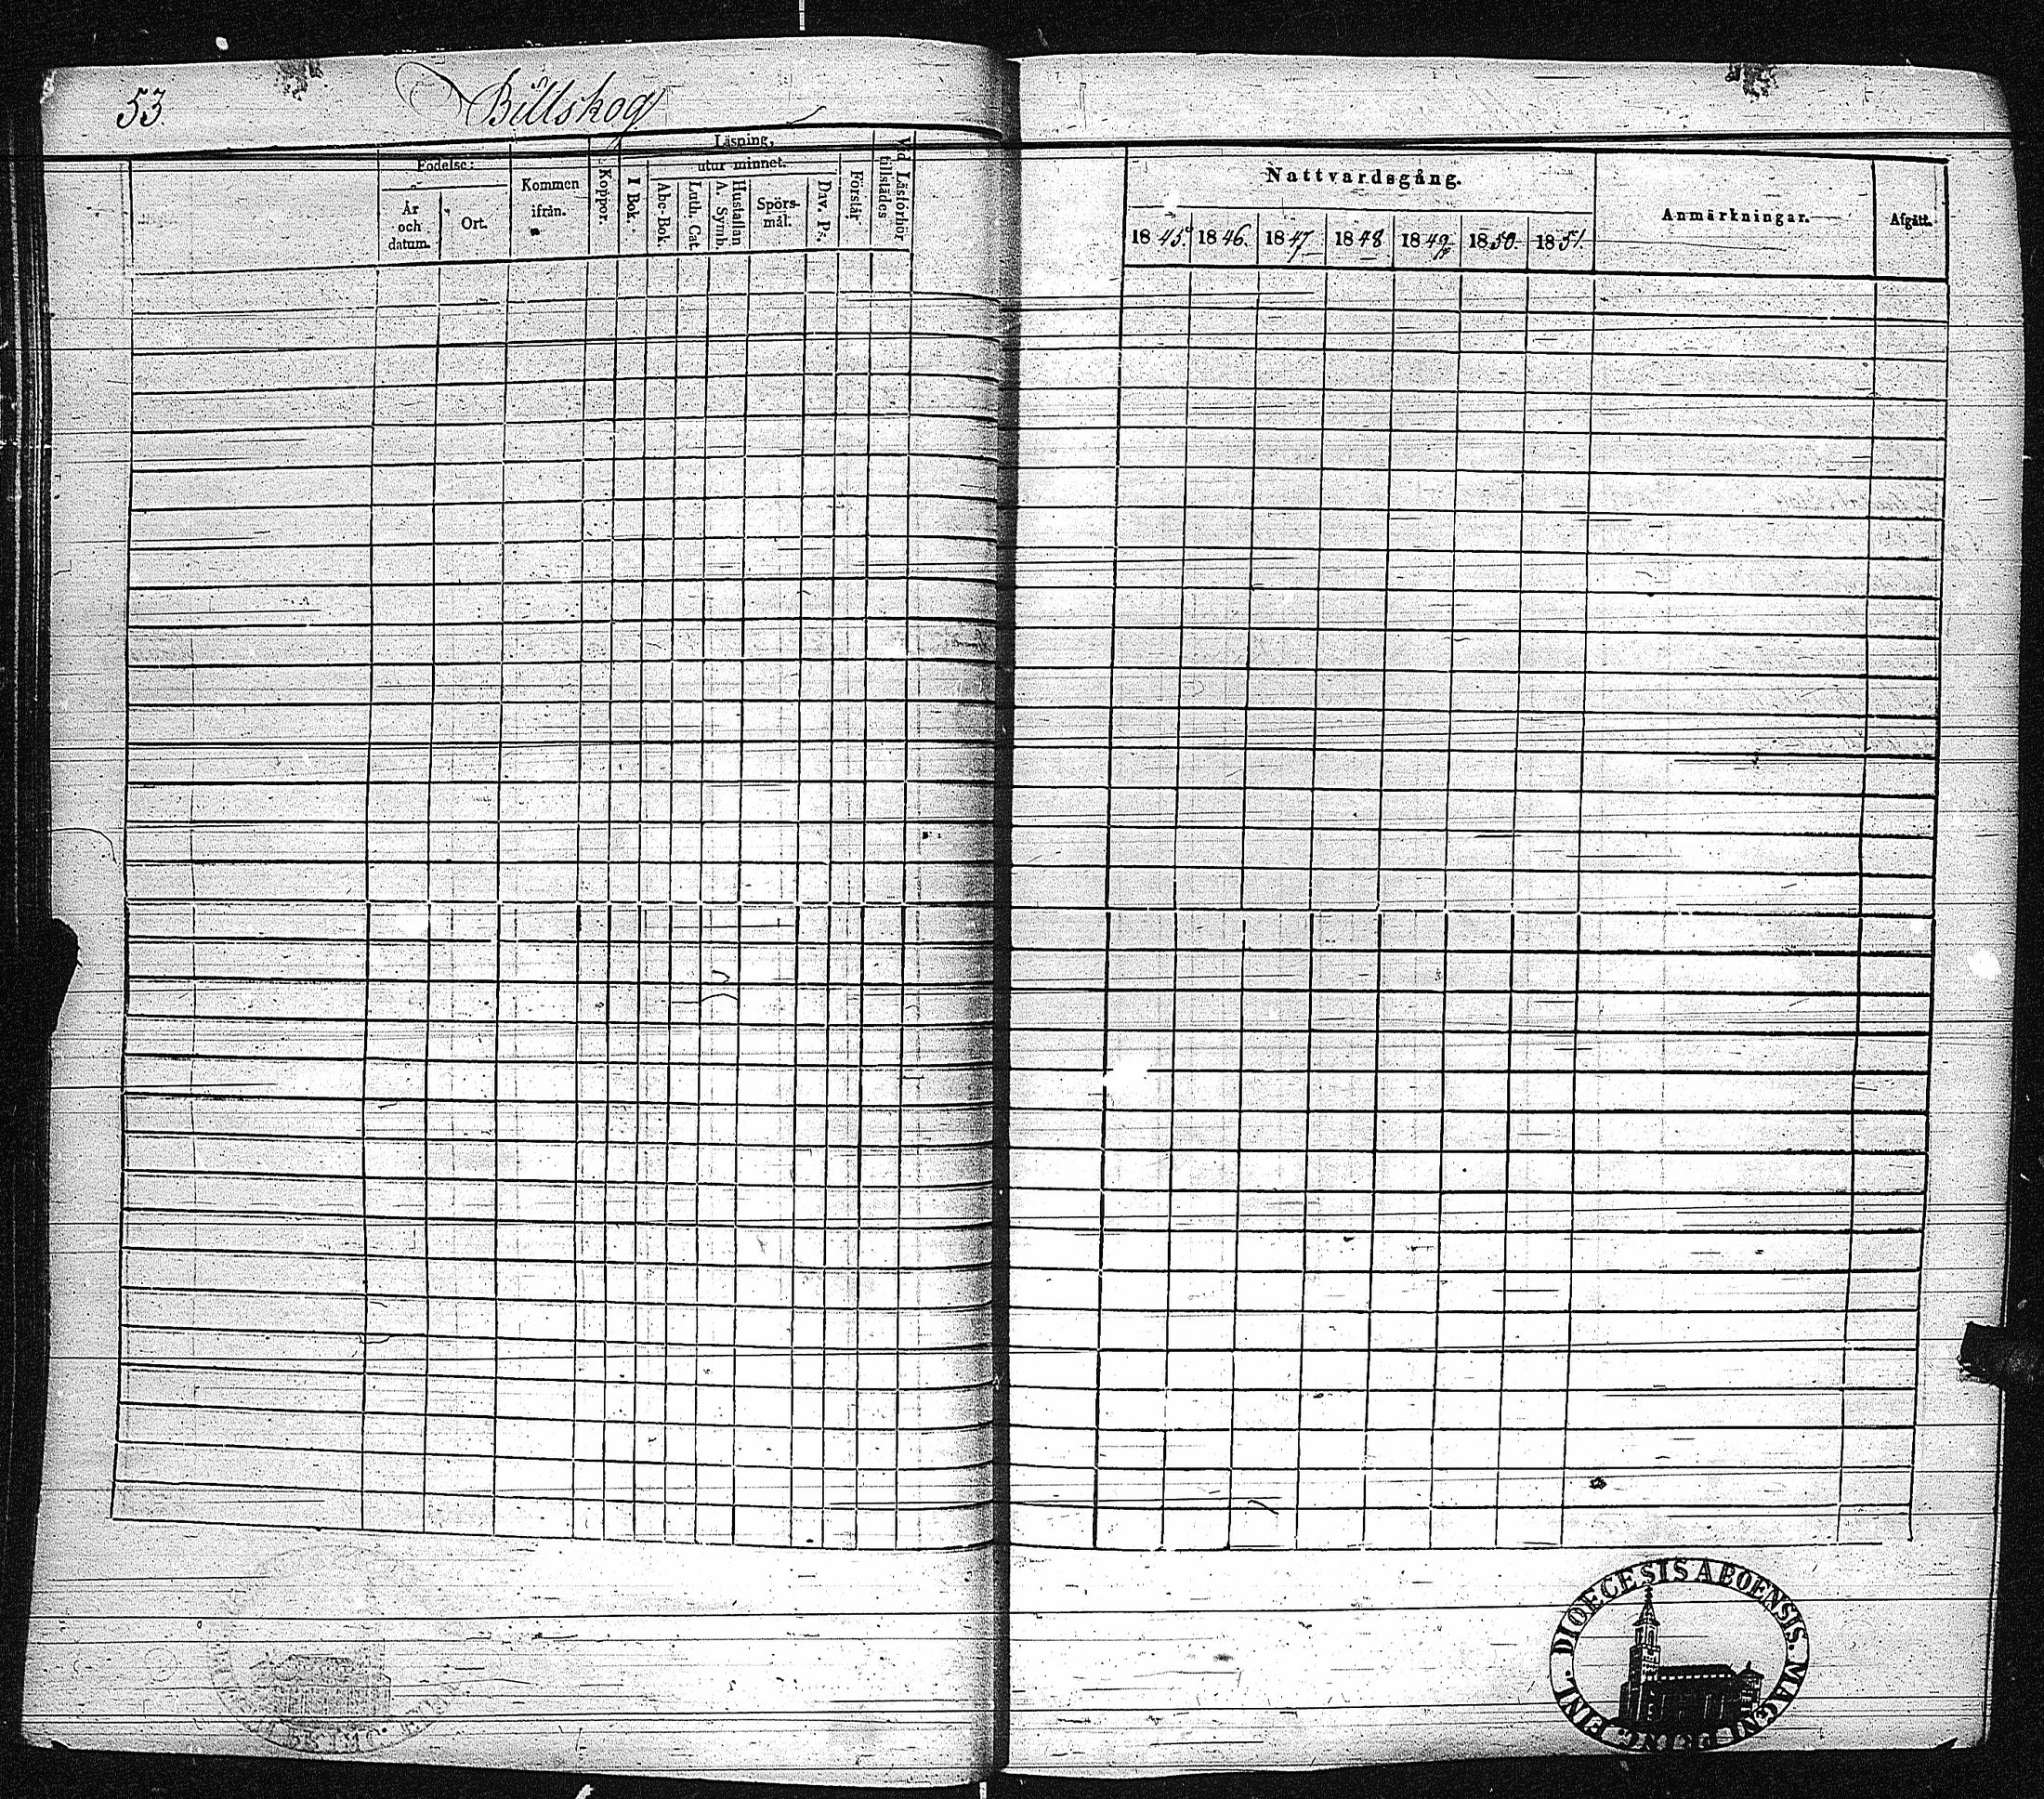 53. Billskog
Födelse:
År och datum.
Ort.
Kommen ifrån.
Koppor.
Läsning,
I Bok.
utur minnet.
Abc-Bok.
Luth. Cat.
Hustaflan A. Symb.
Spörs-mål.
Dav. Ps.
Förstår
Vid Läsförhör tillstädes
Nattvardsgång.
1845. 1846. 1847 1848 1849 1850. 1851.
Anmärkningar.
Afgått.
DIOECESIS ABOENSIS. MAGNI PRINC. FINL.